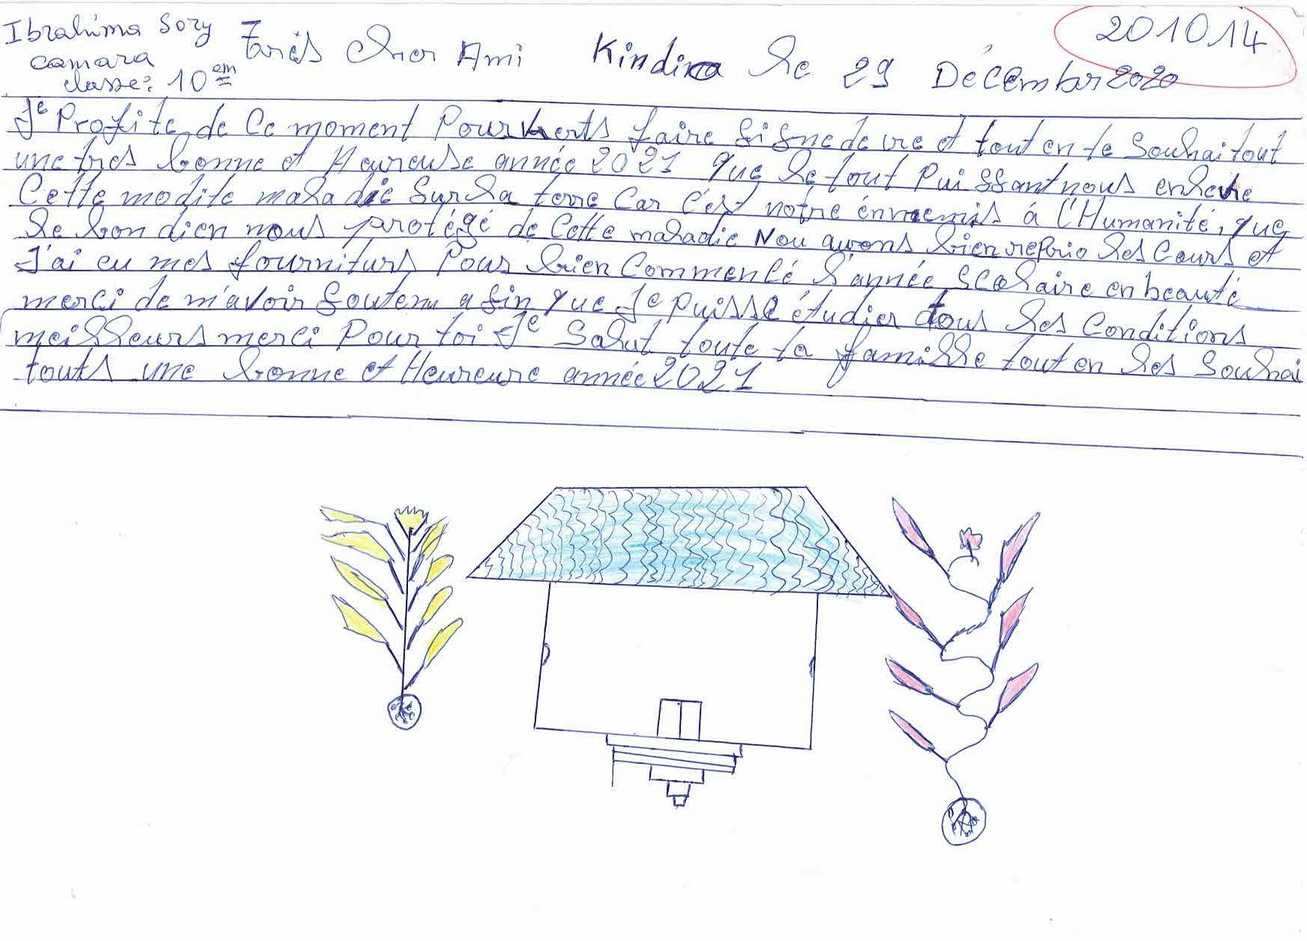 Ibrahima Sory
camara
classe: 10em
Très cher Ami
Kindia le 29 Décembre 2020
201014
Je Profite de ce moment Pour faire signe de vie et tout en te souhaitout
une tres bonne et Heureuse année 2021 que le tout Puissant nous enleve
Cette modite maladie Sur la terre Car c'est notre énnemis à l'Humanité, que
le bon dieu nous protégé de Cette maladie Nou avons bien repris les Cours et
J'ai eu mes fourniturs Pour bien Commencé l'année scolaire en beauté
merci de m'avoir soutenu a fin que Je puisse étudier dous les Conditions
meilleurs merci Pour toi Je Salut toute ta famille tout en les Souhai
touts une bonne et Heureure année 2021